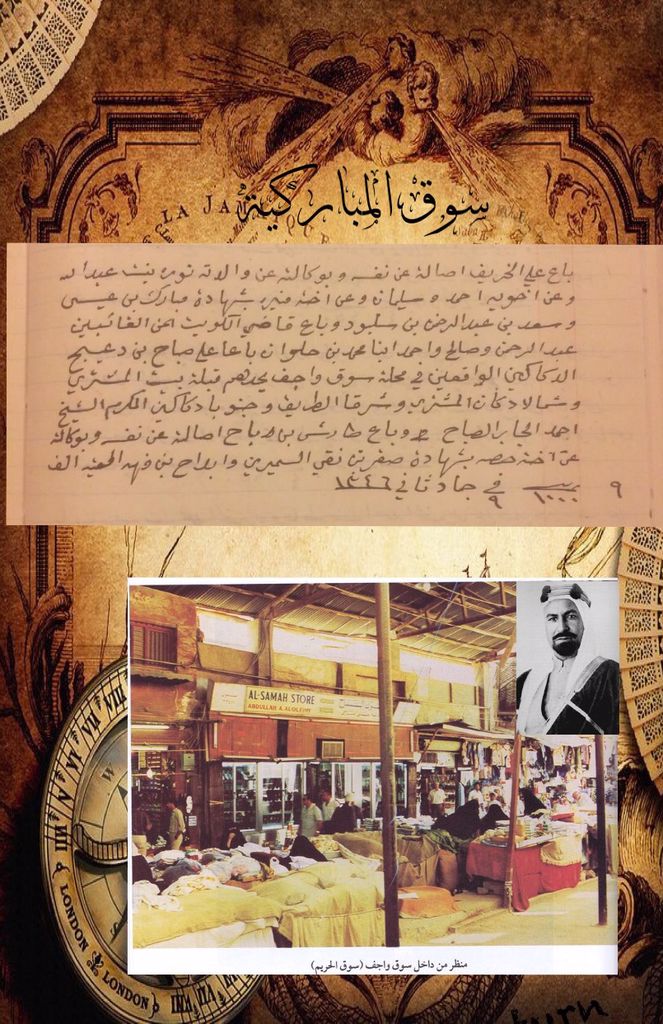 سوق المباركية
LA JA
باع علي الخريف اصالة عن نفسه وبوكالته عن والدته نوره بنت عبدالله
وعن اخويه احمد و سليمان وعن اخته منيره بشهادة مبارك بن عيسى
وسعد بن عبدالرحمن بن سليود وباع قاضي الكويت عن الغائبين
عبدالرحمن وصالح واحمد ابنا محمد بن حلوان باعا علي صباح بن دعيج
الدكاكين الواقعين في محلة سوق واجف يحدهم قبلة بيت المشتري
وشمالا دكان المشتري وشرقا الطريق وجنوبا دكاكين المكرم الشيخ
احمد الجابر الصباح وباع بن اصالة عن نفسه وبوكالة
عن اخته حصه بشهادة بن نقي السميري بن فهد الف
٩ ١٠٠٠ في ٩ جماد ثاني ١٣٤٦
AL-SAMAH STORE
ABDULLAH A.
منظر من داخل سوق واجف (سوق الحريم)
VIII
VII
VI
V
W
IIII
III
LONDON
LONDON